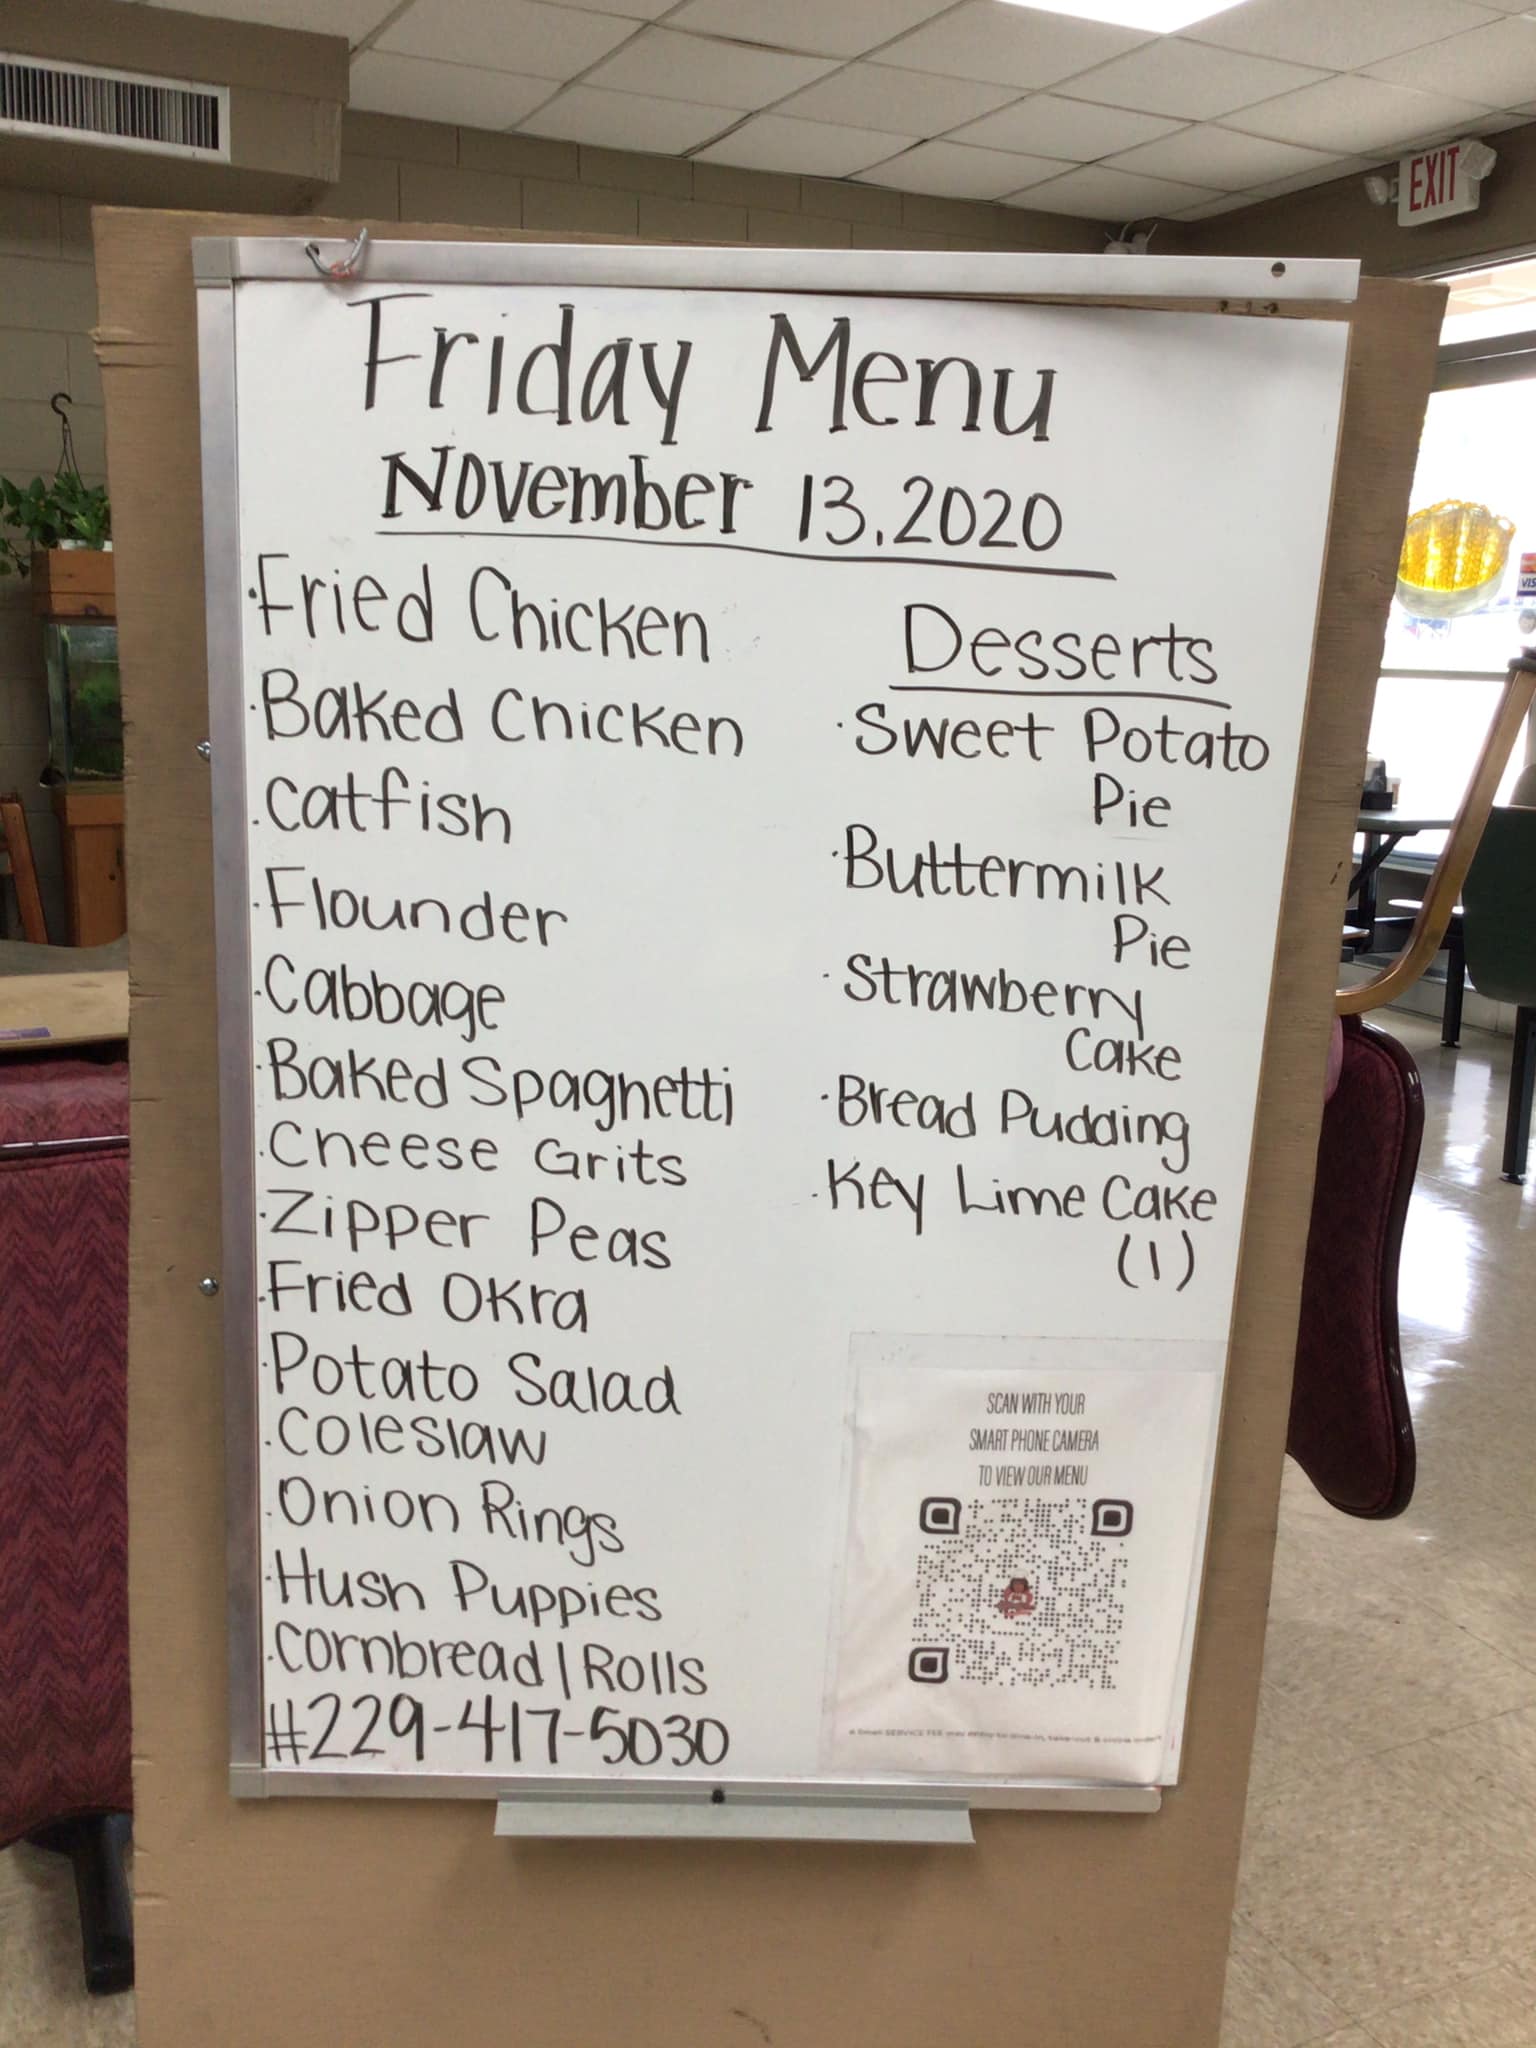 EXIT
Friday Menu
November 13.2020
·Fried Chicken
·Baked Chicken
·Catfish
·Flounder
·Cabbage
·Baked Spaghetti
·Cheese Grits
·Zipper Peas
·Fried Okra
·Potato Salad
·Coleslaw
·Onion Rings
·Hush Puppies
·Cornbread | Rolls
#229-417-5030
Desserts
·Sweet Potato
Pie
·Buttermilk
Pie
·Strawberry
Cake
·Bread Pudding
·Key Lime Cake
(1)
SCAN WITH YOUR
SMART PHONE CAMERA
TO VIEW OUR MENU
A Small SERVICE FEE may apply to dine-in, take-out & online order
VIS